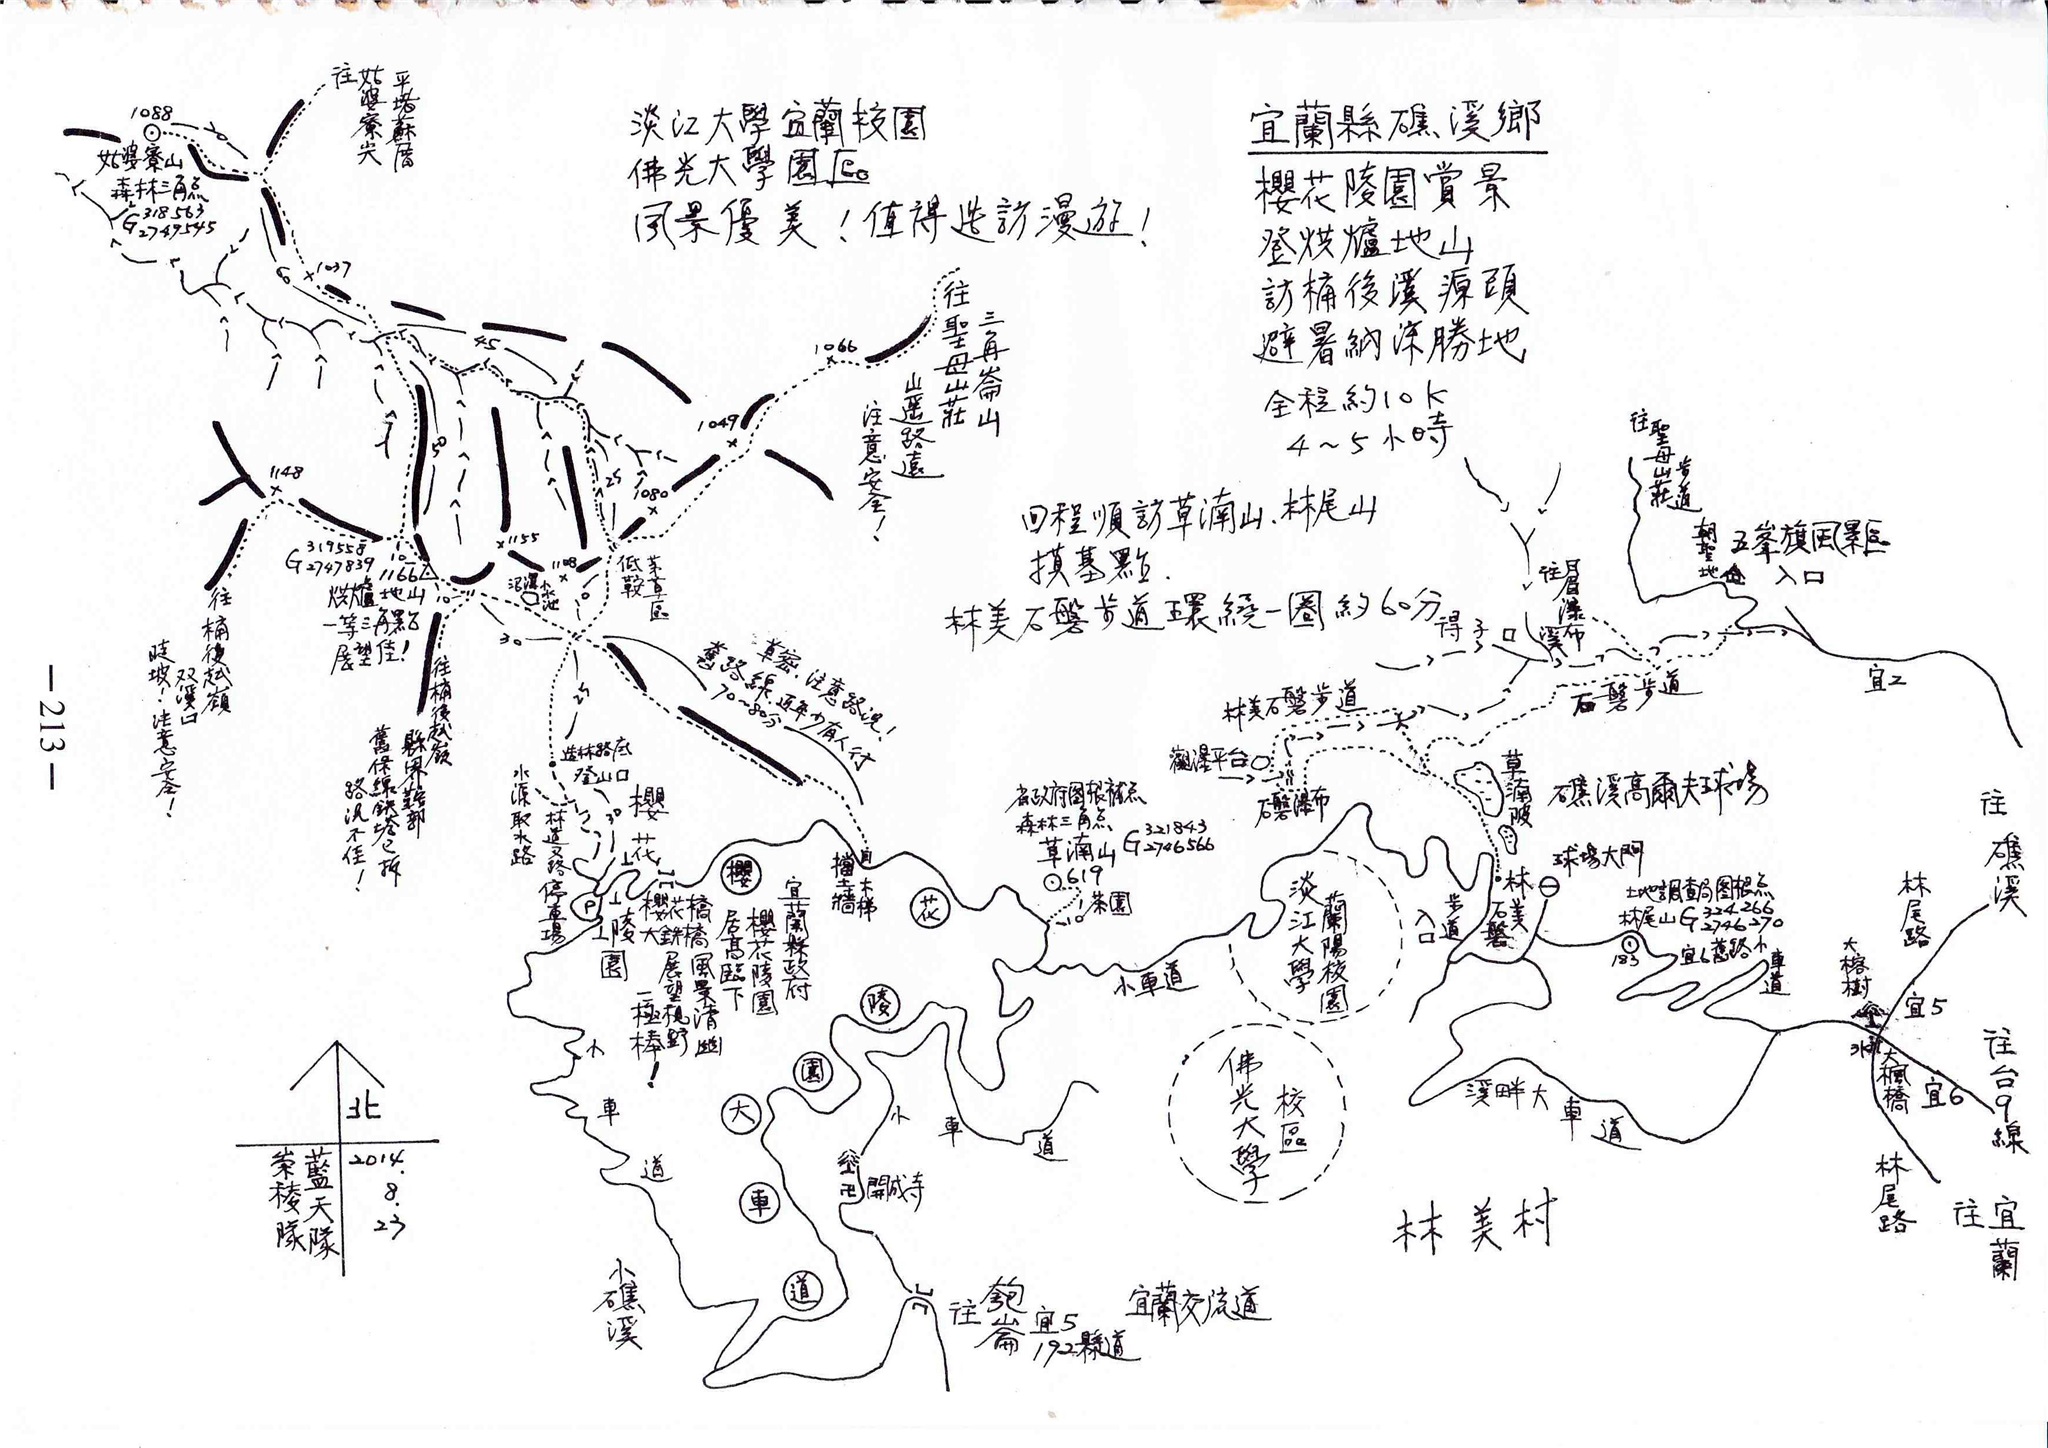 宜蘭縣礁溪鄉
櫻花陵園賞景
登烘爐地山
訪桶後溪源頭
避暑納涼勝地
全程約10K
4~5小時
淡江大學宜蘭校園
佛光大學園區
風景優美！值得造訪漫遊！
回程順訪草湳山、林尾山
摸基點.
林美石磐步道環繞一圈約60分
往姑婆寮尖
1088
姑婆寮山
森林三角点
G 318563
2749545
10
1037
45
1066
往聖母山莊
三角崙山
山遥路遠
注意安全！
1049
50
25
1080
1148
319558
G 2747839
10
1166
烘爐地山
一等三角點
展望佳！
1155
1108
水池
低鞍
茅草區
10
30
往桶後越嶺
双溪口
陡坡！注意安全！
往桶後越嶺
縣界東部
舊保線鉄塔已拆
路況不佳！
草密、注意路況！
舊路線.近年少有人行
70~80分
25
造林路底
登山口
30
水源取水路
林道叉路
停車場
P
櫻花
陵園
櫻花橋
大鉄橋
風景清幽
展望視野
一極棒！
宜蘭縣政府
櫻花陵園
居高臨下
擋土牆
木梯
櫻
花
陵
園
大
車
道
省政府圖根補点
森林三角点
草湳山
G 321843
2746566
619
茶園
10
小車道
淡江大學
蘭陽校園
佛光大學
校區
往聖母山莊
步道
朝聖地
五峯旗風景區
入口
往眉瀑布
得子口
溪
林美石磐步道
石磐步道
觀瀑平台
石磐瀑布
草湳陂
礁溪高爾夫球場
球場大門
林美
石磐
步道
入口
土地調查局圖根点
林尾山
G 324266
2746270
183
宜6舊路小車道
宜2
往礁溪
林尾路
大榕樹
宜5
3K
大楓橋
宜6
往台9線
林尾路
往宜蘭
溪畔大車道
林美村
小車道
小車道
開成寺
小礁溪
往匏崙
宜5
192縣道
宜蘭交流道
北
2014.
8.
23
藍天隊
崇稜隊
—213—